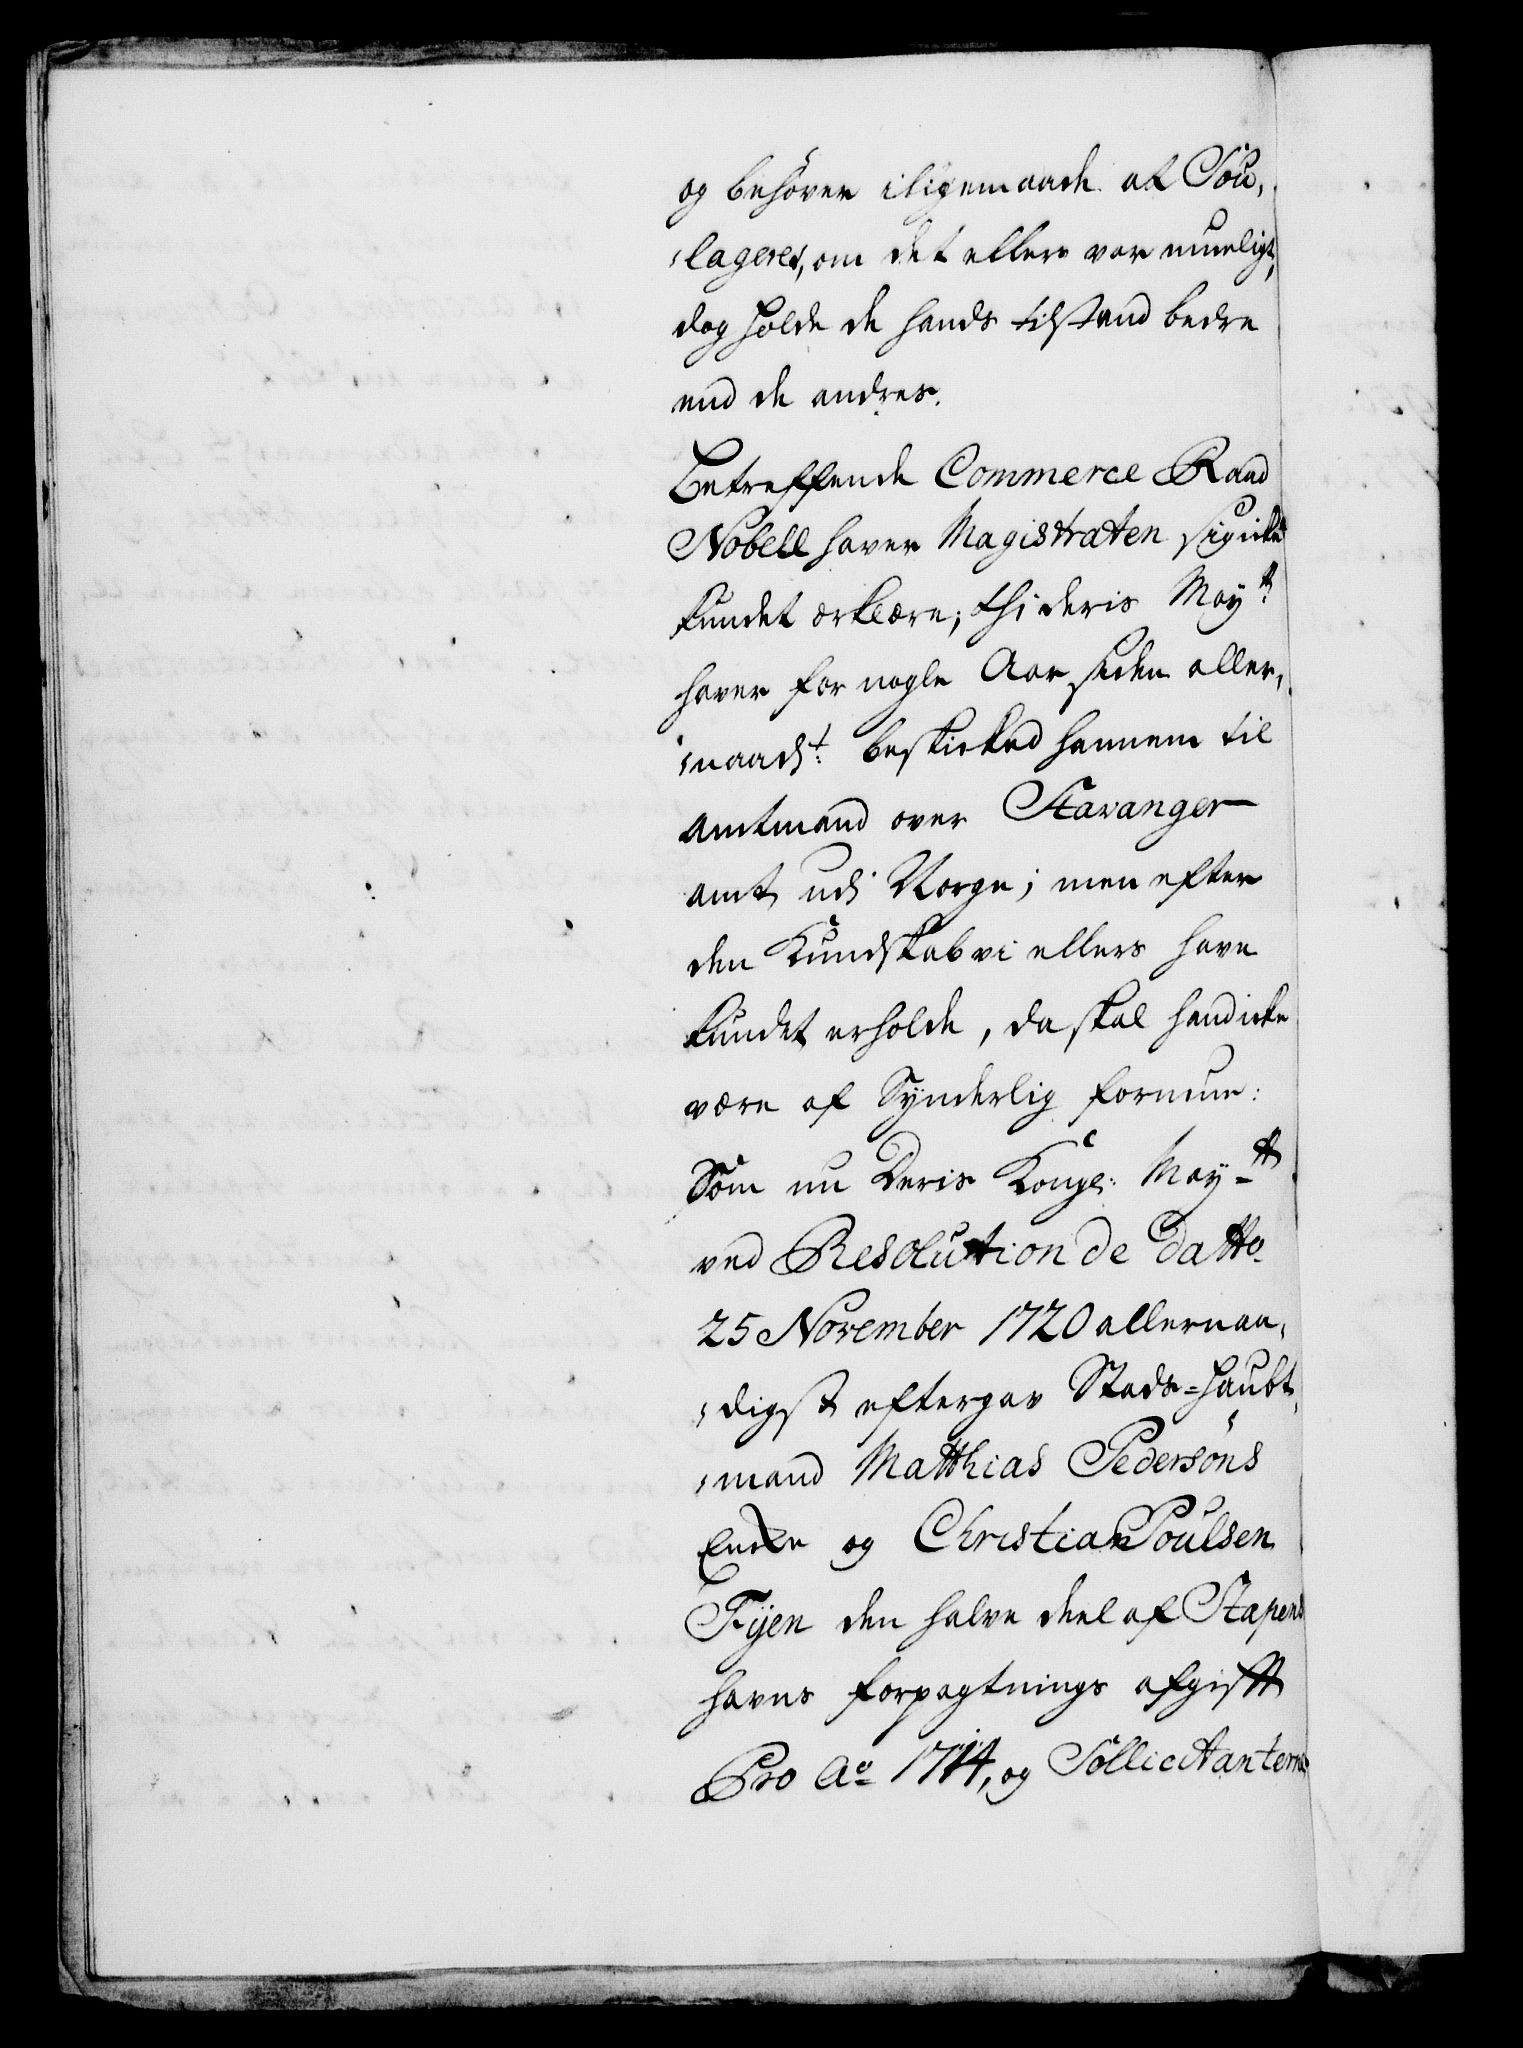 og behøver iligemaade at Sou,
,lageres, om det ellers var mueligt,
dog holde de hands tilstand bedre
end de andres.
Betreffende Commerce Raad
Nobell haver Magistraten sig icke
kundet erklære; thi deris May:tt
haver for nogle Aar siden aller,
,naads:t beskicked hannem til
Amtmand over Stavanger
Amt udi Norge; men efter
den Kundskab vi ellers have
kundet erholde, da skal hand icke
være af Synderlig formue:
Som nu Deris Kongl: May-tt
ved Resolution de Datto
25 November 1720 allernaa,
,digst eftergav Stads-Haubt,
,mand Matthias Pedersöns
Encke og Christian Poulsen
Fyen den halve deel af Stapens
havns forpagtnings afgifft
Pro Ao 1714, og Sollicitanterne